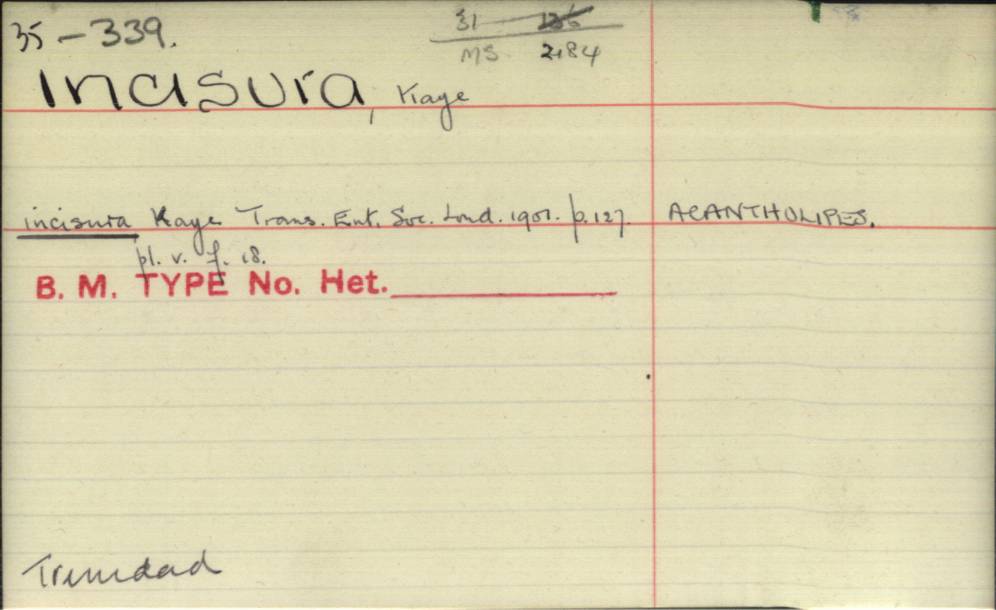 35 – 339.
31 136
MS. 2184
Incisura, Kaye
incisura Kaye Trans. Ent. Soc. Lond. 1901. p. 127. ACANTHOLIPES.
pl. v. f. 18.
B. M. TYPE No. Het.
Trinidad